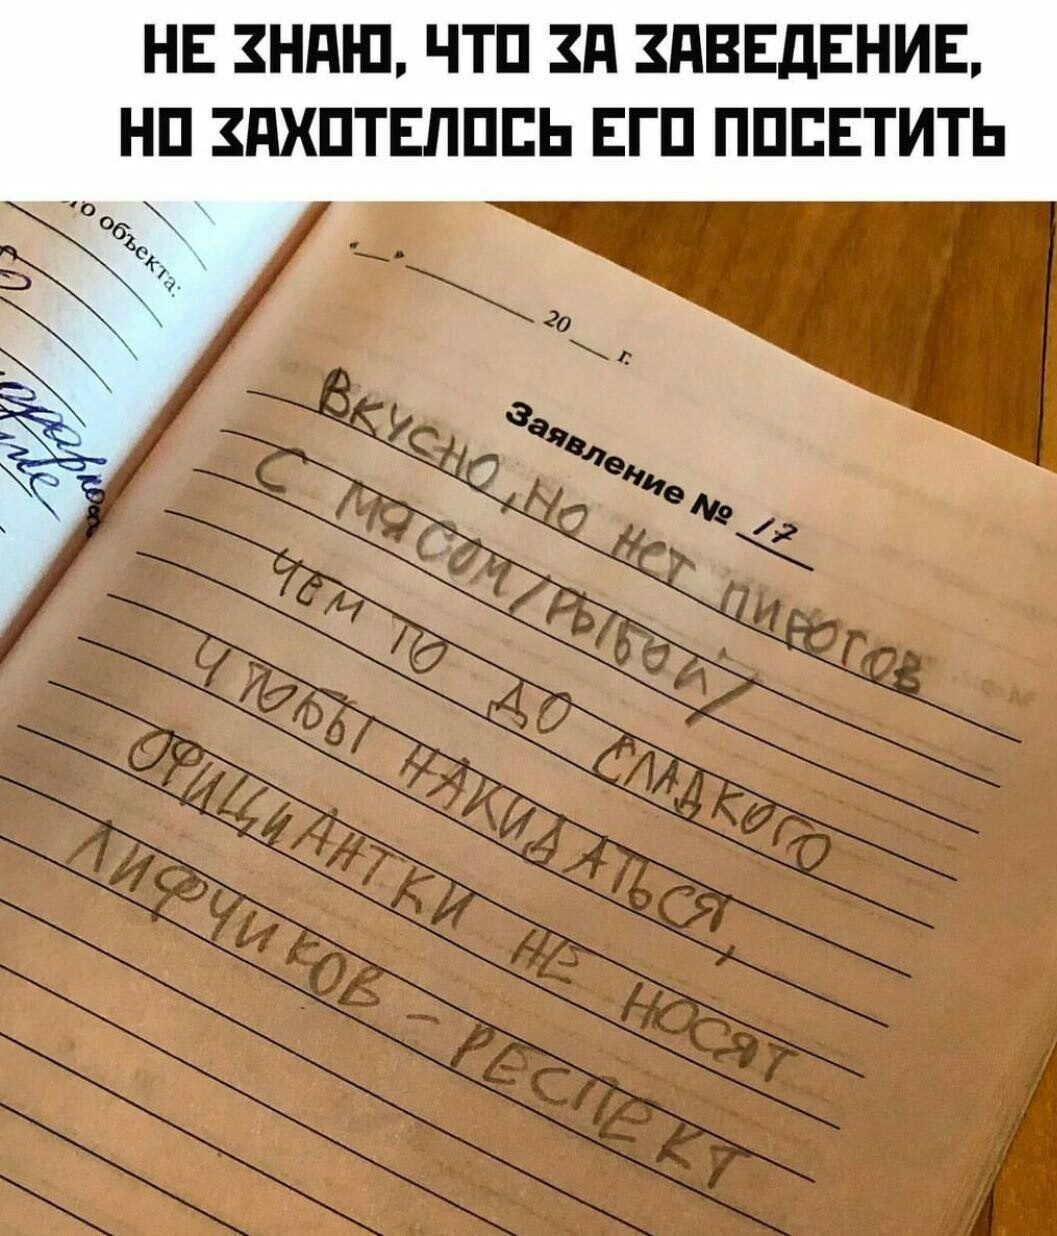 НЕ ЗНАЮ, ЧТО ЗА ЗАВЕДЕНИЕ,
НО ЗАХОТЕЛОСЬ ЕГО ПОСЕТИТЬ
го объекта:
"__" ________ 20__ г.
Заявление № 17
ВКУСНО, НО НЕТ ПИРОГОВ
С МЯСОМ/РЫБОЙ/
ЧЕМ ТО ДО СЛАДКОГО
ЧТОБЫ НАКИДАТЬСЯ,
ОФИЦИАНТКИ НЕ НОСЯТ
ЛИФЧИКОВ - РЕСПЕКТ